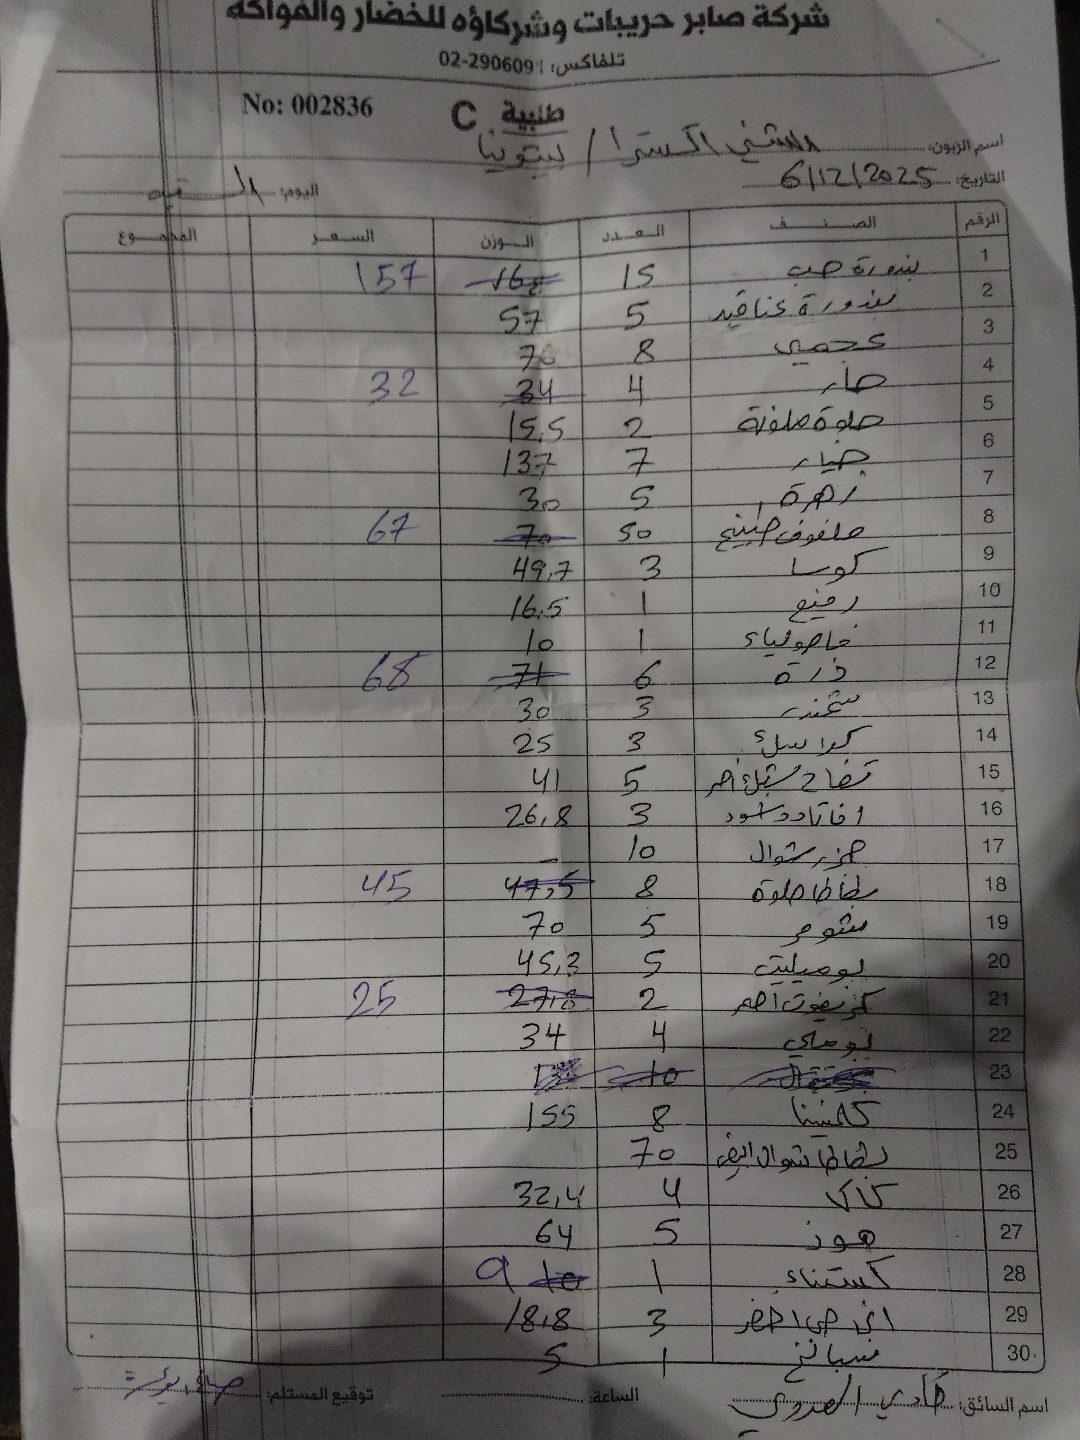 شركة صابر حريبات وشركاؤه للخضار والفواكه
تلفاكس: 02-290609
No: 002836
طلبية C
اسم الزبون: / بيتونيا
التاريخ: 6/12/2025
اليوم: السبت
الرقم الصنف العدد الوزن السعر المجموع
1 بندورة حب 15 157
2 بندورة عناقيد 5 57
3 عجمي 8 76
4 حار 4 34 32
5 حلوة ملونة 2 15,5
6 خيار 7 137
7 زهرة 5 30
8 ملفوف 50 70 67
9 كوسا 3 49,7
10 رفيع 1 16,5
11 فاصولياء 1 10
12 ذرة 6 71 68
13 شمندر 3 30
14 3 25
15 تفاح احمر 5 41
16 3 26,8
17 جزر شوال 10 –
18 بطاطا حلوة 8 47,5 45
19 شومر 5 70
20 بوميليت 5 45,3
21 كريفوت احمر 2 27,8 25
22 بوملي 4 34
23 10
24 كلمنتينا 8 155
25 بطاطا شوال ابيض 70
26 كاكا 4 32,4
27 موز 5 64
28 كستناء 1 10 9
29 اخضر 3 18,8
30 سبانخ 1 5
اسم السائق:
الساعة:
توقيع المستلم: